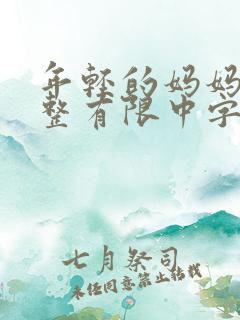 年轻的妈妈
整有限中字
七月祭司
未经同意禁止转载